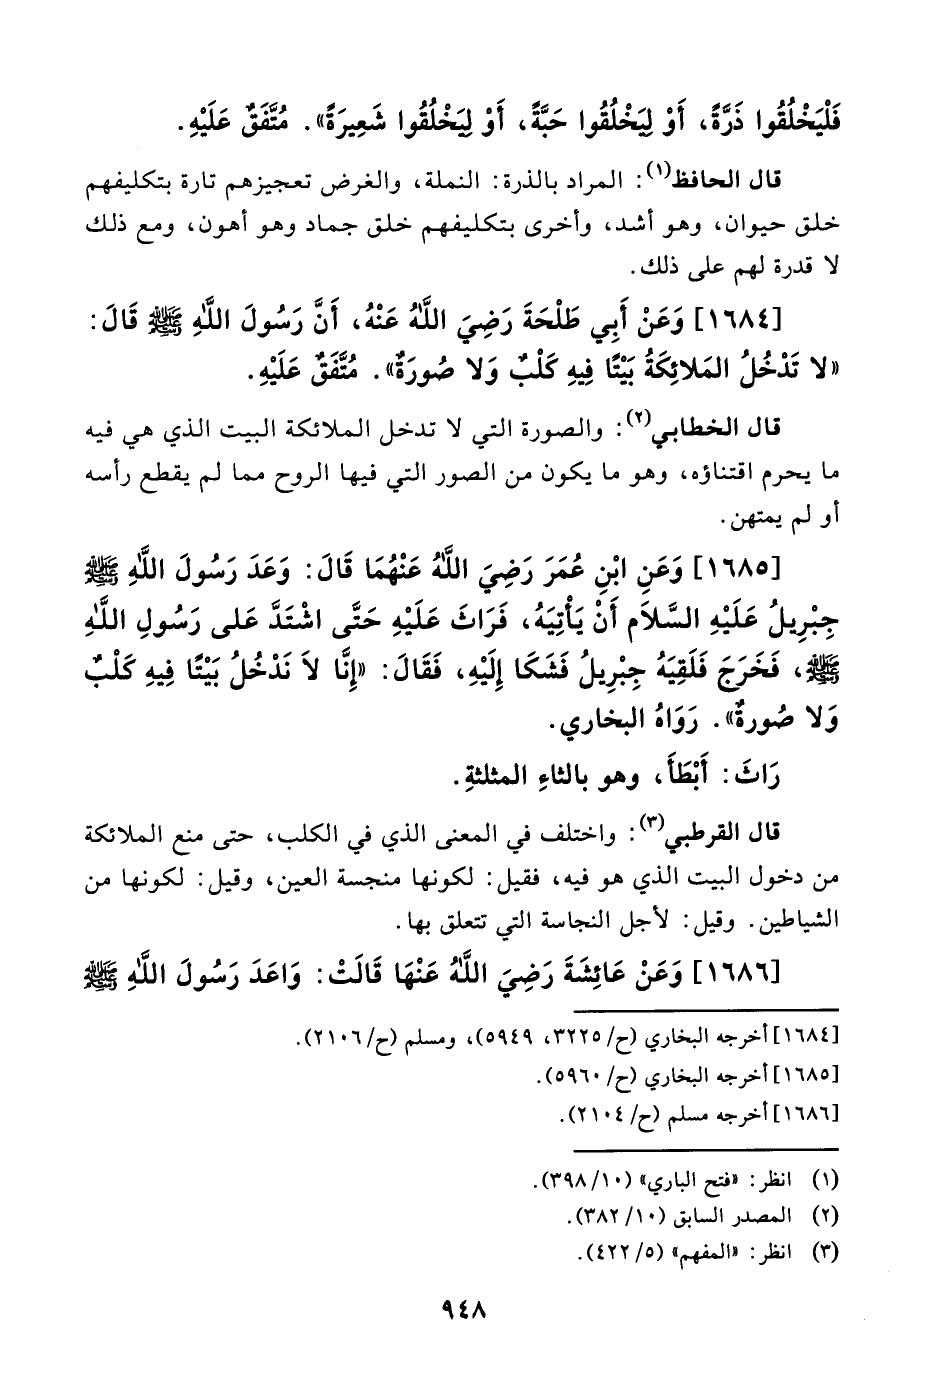 فَلْيَخْلُقُوا ذَرَّةً، أَوْ لِيَخْلُقُوا حَبَّةً، أَوْ لِيَخْلُقُوا شَعِيرَةً». مُتَّفَقٌ عَلَيْهِ.
قال الحافظ(١): المراد بالذرة: النملة، والغرض تعجيزهم تارة بتكليفهم
خلق حيوان، وهو أشد، وأخرى بتكليفهم خلق جماد وهو أهون، ومع ذلك
لا قدرة لهم على ذلك.
[١٦٨٤] وَعَنْ أَبِي طَلْحَةَ رَضِيَ اللَّهُ عَنْهُ، أَنَّ رَسُولَ اللَّهِ ﷺ قَالَ:
«لا تَدْخُلُ المَلائِكَةُ بَيْتًا فِيهِ كَلْبٌ وَلا صُورَةٌ». مُتَّفَقٌ عَلَيْهِ.
قال الخطابي(٢): والصورة التي لا تدخل الملائكة البيت الذي هي فيه
ما يحرم اقتناؤه، وهو ما يكون من الصور التي فيها الروح مما لم يقطع رأسه
أو لم يمتهن.
[١٦٨٥] وَعَنِ ابْنِ عُمَرَ رَضِيَ اللَّهُ عَنْهُمَا قَالَ: وَعَدَ رَسُولَ اللَّهِ ﷺ
جِبْرِيلُ عَلَيْهِ السَّلَامِ أَنْ يَأْتِيَهُ، فَرَاثَ عَلَيْهِ حَتَّى اشْتَدَّ عَلى رَسُولِ اللَّهِ
ﷺ، فَخَرَجَ فَلَقِيَهُ جِبْرِيلُ فَشَكَا إِلَيْهِ، فَقَالَ: «إِنَّا لاَ نَدْخُلُ بَيْتًا فِيهِ كَلْبٌ
وَلا صُورةٌ». رَوَاهُ البخاري.
رَاثَ: أَبْطَأَ، وهو بالثاءِ المثلثةِ.
قال القرطبي(٣): واختلف في المعنى الذي في الكلب، حتى منع الملائكة
من دخول البيت الذي هو فيه، فقيل: لكونها منجسة العين، وقيل: لكونها من
الشياطين. وقيل: لأجل النجاسة التي تتعلق بها.
[١٦٨٦] وَعَنْ عَائِشَةَ رَضِيَ اللَّهُ عَنْهَا قَالَتْ: وَاعَدَ رَسُولَ اللَّهِ ﷺ
[١٦٨٤] أخرجه البخاري (ح/ ٣٢٢٥، ٥٩٤٩)، ومسلم (ح/ ٢١٠٦).
[١٦٨٥] أخرجه البخاري (ح/ ٥٩٦٠).
[١٦٨٦] أخرجه مسلم (ح/ ٢١٠٤).
(١) انظر: «فتح الباري» (١٠/ ٣٩٨).
(٢) المصدر السابق (١٠/ ٣٨٢).
(٣) انظر: «المفهم» (٥/ ٤٢٢).
٩٤٨